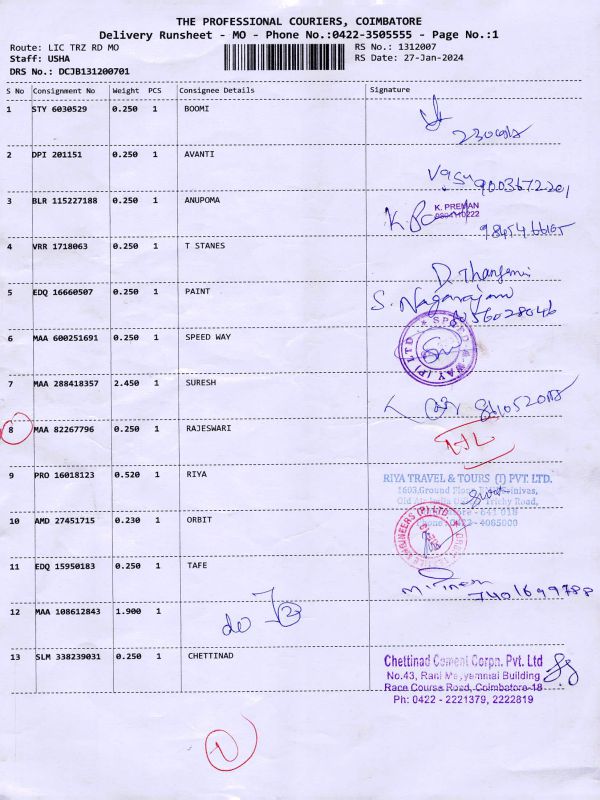 THE PROFESSIONAL COURIERS, COIMBATORE
Delivery Runsheet - MO - Phone No.:0422-3505555 - Page No.:1
Route: LIC TRZ RD MO RS No.: 1312007
Staff: USHA RS Date: 27-Jan-2024
DRS No.: DCJB131200701
S No Consignment No Weight PCS Consignee Details Signature
1 STY 6030529 0.250 1 BOOMI
2 DPI 201151 0.250 1 AVANTI
Vasu 9003672201
3 BLR 115227188 0.250 1 ANUPOMA
K. PREMAN
4 VRR 1718063 0.250 1 T STANES
5 EDQ 16660507 0.250 1 PAINT
S. Nagarajan
6 MAA 600251691 0.250 1 SPEED WAY
SPEED WAY (P) LTD
7 MAA 288418357 2.450 1 SURESH
8 MAA 82267796 0.250 1 RAJESWARI
9 PRO 16018123 0.520 1 RIYA
RIYA TRAVEL & TOURS (I) PVT. LTD.
1603,Ground Floor, Srinivas,
Trichy Road,
641 018
Phone : 0422 - 4065000
10 AMD 27451715 0.230 1 ORBIT
ENGINEERS (P) LTD
11 EDQ 15950183 0.250 1 TAFE
7401699788
12 MAA 108612843 1.900 1
do
13 SLM 338239031 0.250 1 CHETTINAD
Chettinad Cement Corpn. Pvt. Ltd
No.43, Rani Meyyammai Building
Race Course Road, Coimbatore-18
Ph: 0422 - 2221379, 2222819
1